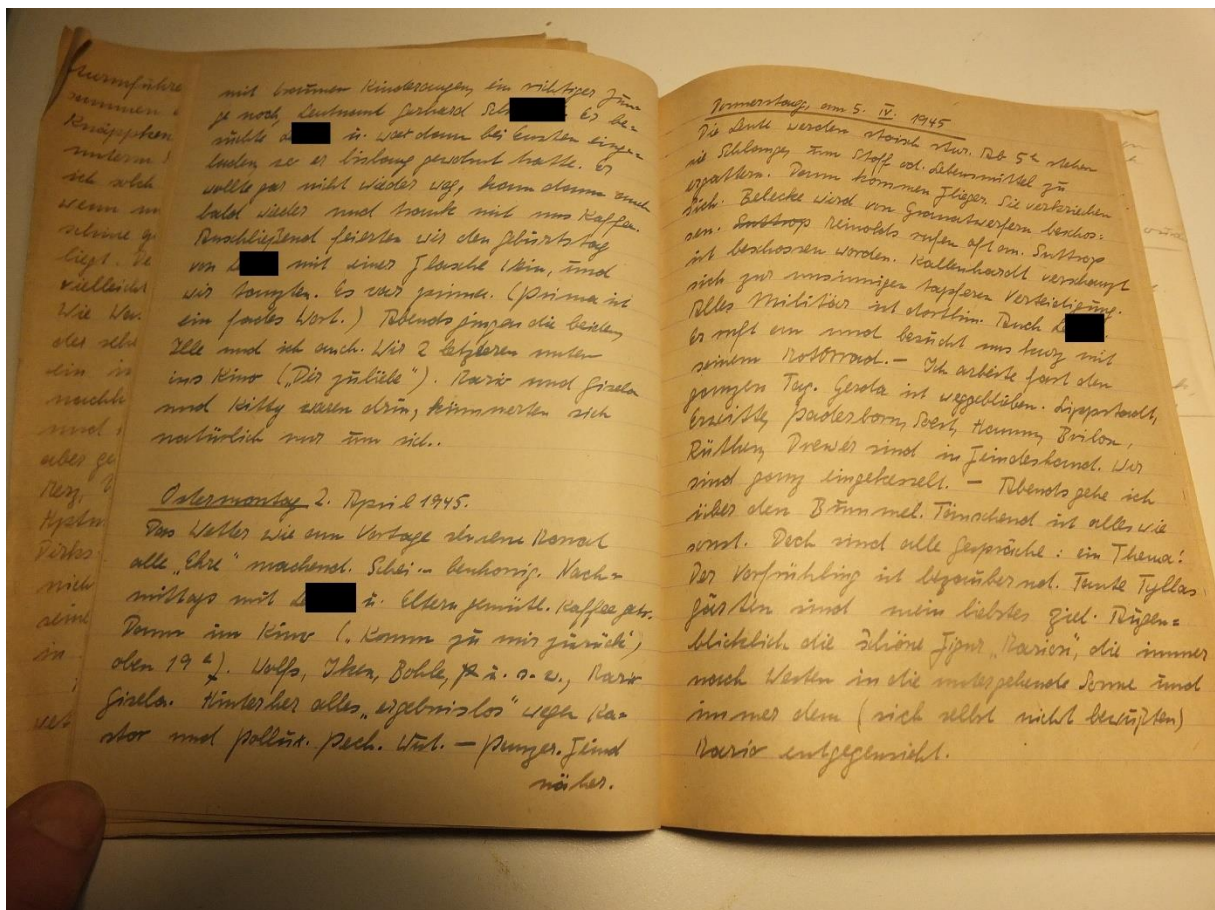 mit braunen Kinderaugen, ein richtiger Jun-
ge noch, Leutnant Gerhard Sch
suchte u. war dann bei Ensten einge-
laden, wo er bislang gewohnt hatte. Er
wollte gar nicht wieder weg, kam dann auch
bald wieder und trank mit uns Kaffee.
Anschließend feierten wir den Geburtstag
von mit einer Flasche Wein, und
wir tanzten. Es war prima. (Prima ist
ein fades Wort.) Abends gingen die beiden,
Ille und ich auch. Wir 2 letzteren unten
ins Kino („Dir zuliebe“). Mario und Gisela
und Kitty waren drin, kümmerten sich
natürlich nur um sich..
Ostermontag 2. April 1945.
Das Wetter wie am Vortage seinem Monat
alle „Ehre“ machend. Schei-- Nach=
mittags mit u. Eltern gemütl. Kaffee getr.
Dann im Kino („Komm zu mir zurück“,
oben 19 ). Wolfs, Iken, Bohle, u. s. w., Mario
Gisela. Hinterher alles „ergebnislos“ wegen Ka-
stor und Pollux. Pech. Wut. — Panzer. Feind
näher.
Donnerstag, am 5. IV. 1945
Die Leute werden stur. Ab 5 stehen
sie Schlange, um Stoff od. Lebensmittel zu
ergattern. Dann kommen Flieger. Sie verkriechen
sich. Belecke wird von Granatwerfern beschos=
sen. Suttrop Reinolds rufen oft an. Suttrop
ist beschossen worden. Kallenhardt verschanzt
sich zur unsinnigen tapferen Verteidigung.
Alles Militär ist dorthin. Auch
Er ruft an und besucht uns kurz mit
seinem Motorrad. — Ich arbeite fast den
ganzen Tag. Gerda ist weggeblieben. Lippstadt,
Erwitte, Paderborn, Soest, Hamm, Brilon,
Rüthen, Drewer sind in Feindeshand. Wir
sind ganz eingekesselt. — Abends gehe ich
über den Bummel. Täuschend ist alles wie
sonst. Doch sind alle Gespräche: ein Thema!
Der Vorfrühling ist bezaubernd. Tante Tyllas
Garten und mein liebstes Ziel. Augen=
blicklich die schöne Figur „Marion“, die immer
nach Westen in die untergehende Sonne und
immer dem (sich selbst nicht bewußten)
Mario entgegensieht.